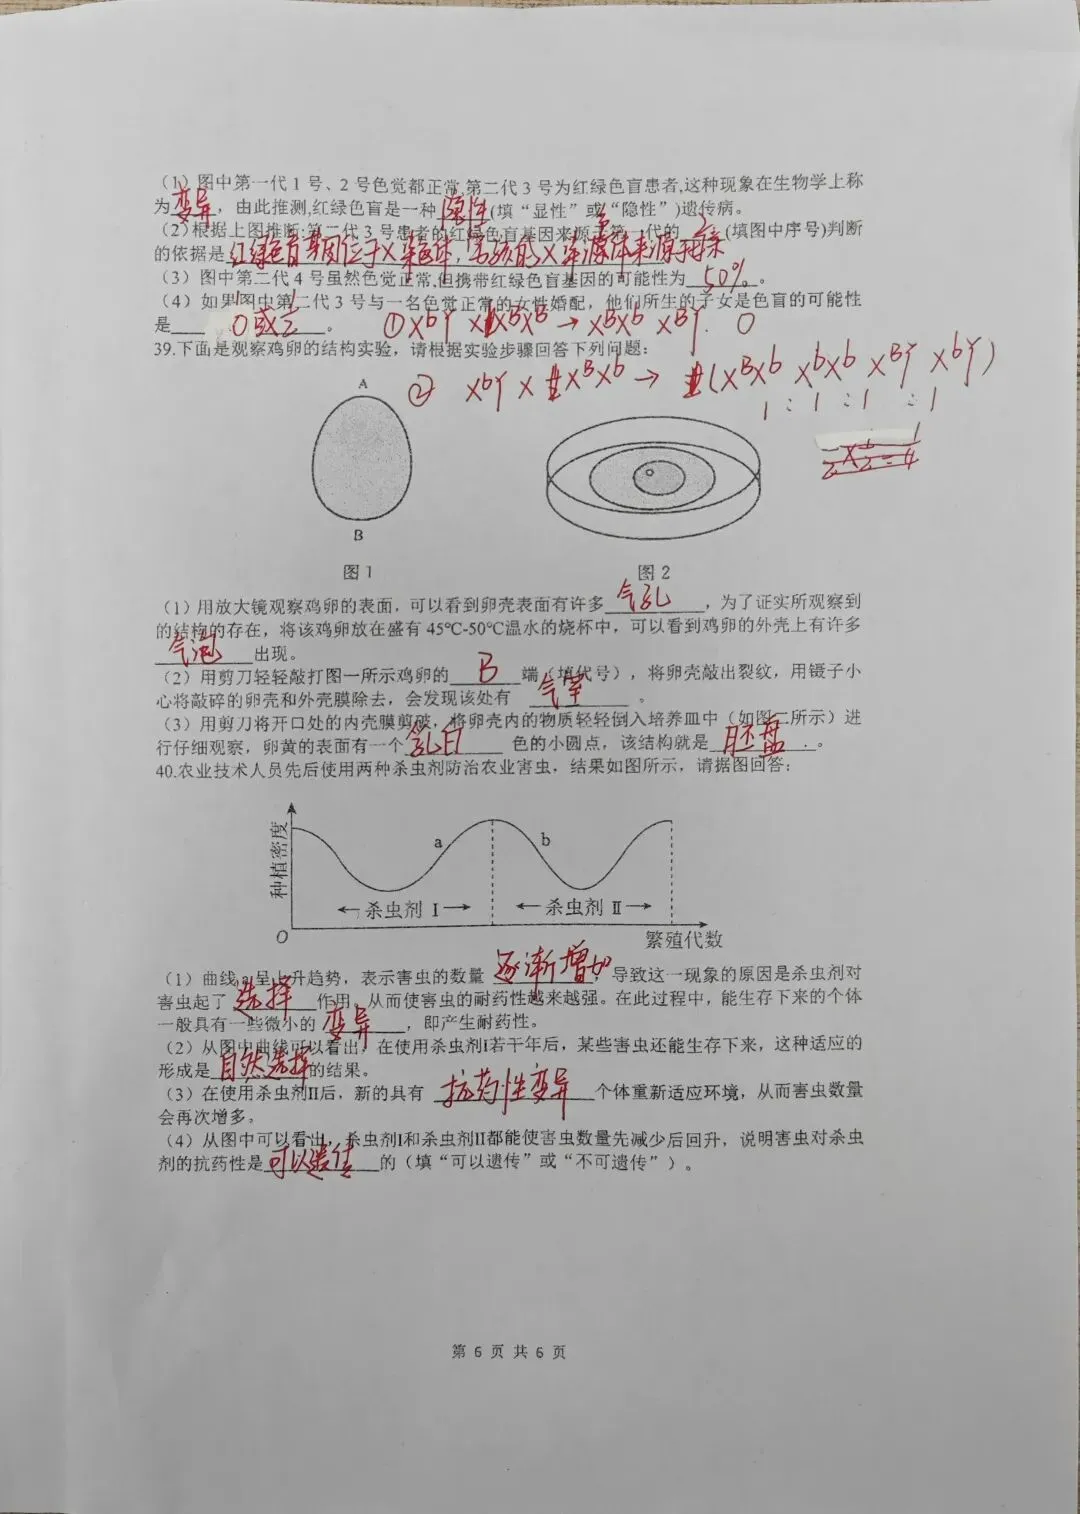 （1）图中第一代 1 号、2 号色觉都正常,第二代 3 号为红绿色盲患者,这种现象在生物学上称
为变异，由此推测,红绿色盲是一种隐性(填“显性”或“隐性”)遗传病。
（2）根据上图推断:第二代 3 号患者的红绿色盲基因来源于第一代的 2 (填图中序号)判断
的依据是红绿色盲基因位于X染色体，男孩的X染色体来源于母亲
（3）图中第二代 4 号虽然色觉正常,但携带红绿色盲基因的可能性为 50% 。
（4）如果图中第二代 3 号与一名色觉正常的女性婚配，他们所生的子女是色盲的可能性
是 0或1/2 。 ①XbY × XBXB → XBXb XBY. 0
39.下面是观察鸡卵的结构实验，请根据实验步骤回答下列问题：
② XbY × XBXb → (XBXb XbXb XBY XbY)
1 : 1 : 1 : 1
A
B
图 1
图 2
（1）用放大镜观察鸡卵的表面，可以看到卵壳表面有许多气孔，为了证实所观察到
的结构的存在，将该鸡卵放在盛有 45℃-50℃温水的烧杯中，可以看到鸡卵的外壳上有许多
气泡出现。
（2）用剪刀轻轻敲打图一所示鸡卵的 B 端（填代号），将卵壳敲出裂纹，用镊子小
心将敲碎的卵壳和外壳膜除去，会发现该处有 气室 。
（3）用剪刀将开口处的内壳膜剪破，将卵壳内的物质轻轻倒入培养皿中（如图二所示）进
行仔细观察，卵黄的表面有一个乳白 色的小圆点，该结构就是胚盘。
40.农业技术人员先后使用两种杀虫剂防治农业害虫，结果如图所示，请据图回答：
种植密度
a
b
杀虫剂 I
杀虫剂 II
O
繁殖代数
（1）曲线 a 呈上升趋势，表示害虫的数量 逐渐增加，导致这一现象的原因是杀虫剂对
害虫起了 选择 作用，从而使害虫的耐药性越来越强。在此过程中，能生存下来的个体
一般具有一些微小的 变异，即产生耐药性。
（2）从图中曲线可以看出，在使用杀虫剂I若干年后，某些害虫还能生存下来，这种适应的
形成是自然选择的结果。
（3）在使用杀虫剂II后，新的具有 抗药性变异 个体重新适应环境，从而害虫数量
会再次增多。
（4）从图中可以看出，杀虫剂I和杀虫剂II都能使害虫数量先减少后回升，说明害虫对杀虫
剂的抗药性是可以遗传的（填“可以遗传”或“不可遗传”）。
第 6 页 共 6 页